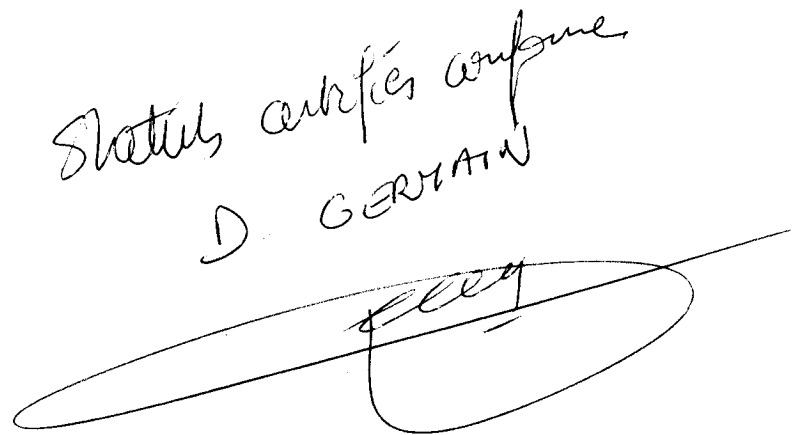 Statuts certifiés conforme
D. GERMAIN